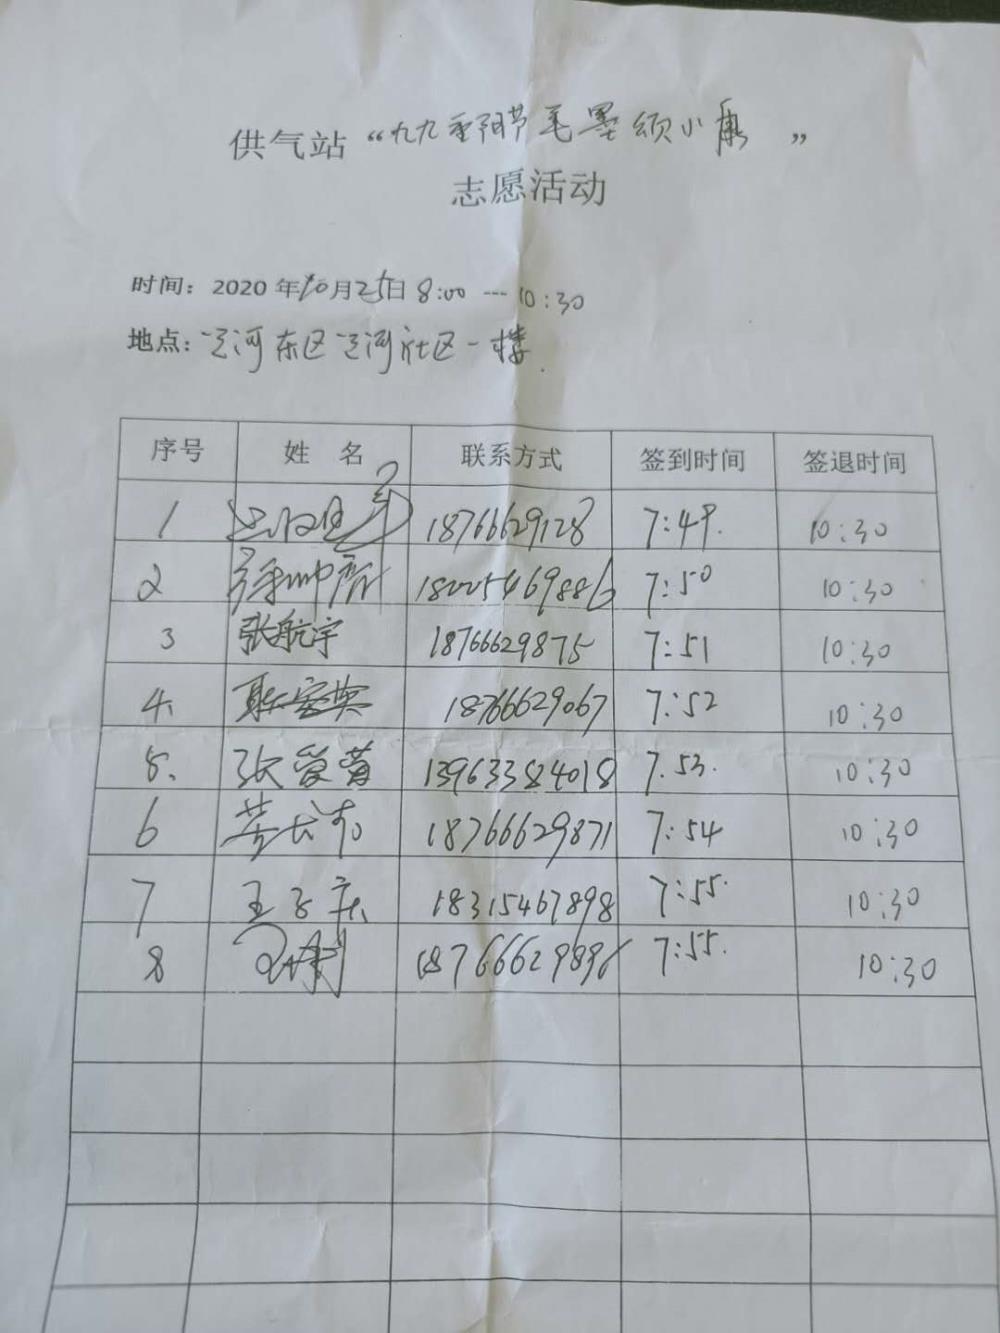 供气站“九九重阳节笔墨颂小康”
志愿活动
时间：2020年10月25日 8:00 --- 10:30
地点：辽河东区辽河社区一楼.
序号 姓名 联系方式 签到时间 签退时间
1 18766629128 7:49. 10:30
2 18005469886 7:50 10:30
3 张航宇 18766629875 7:51 10:30
4、 18766629067 7:52 10:30
5、 张爱萱 13963384018 7.53. 10:30
6 18766629871 7:54 10:30
7 王子庆 18315467898 7:55. 10:30
8 18766629896 7:55. 10:30